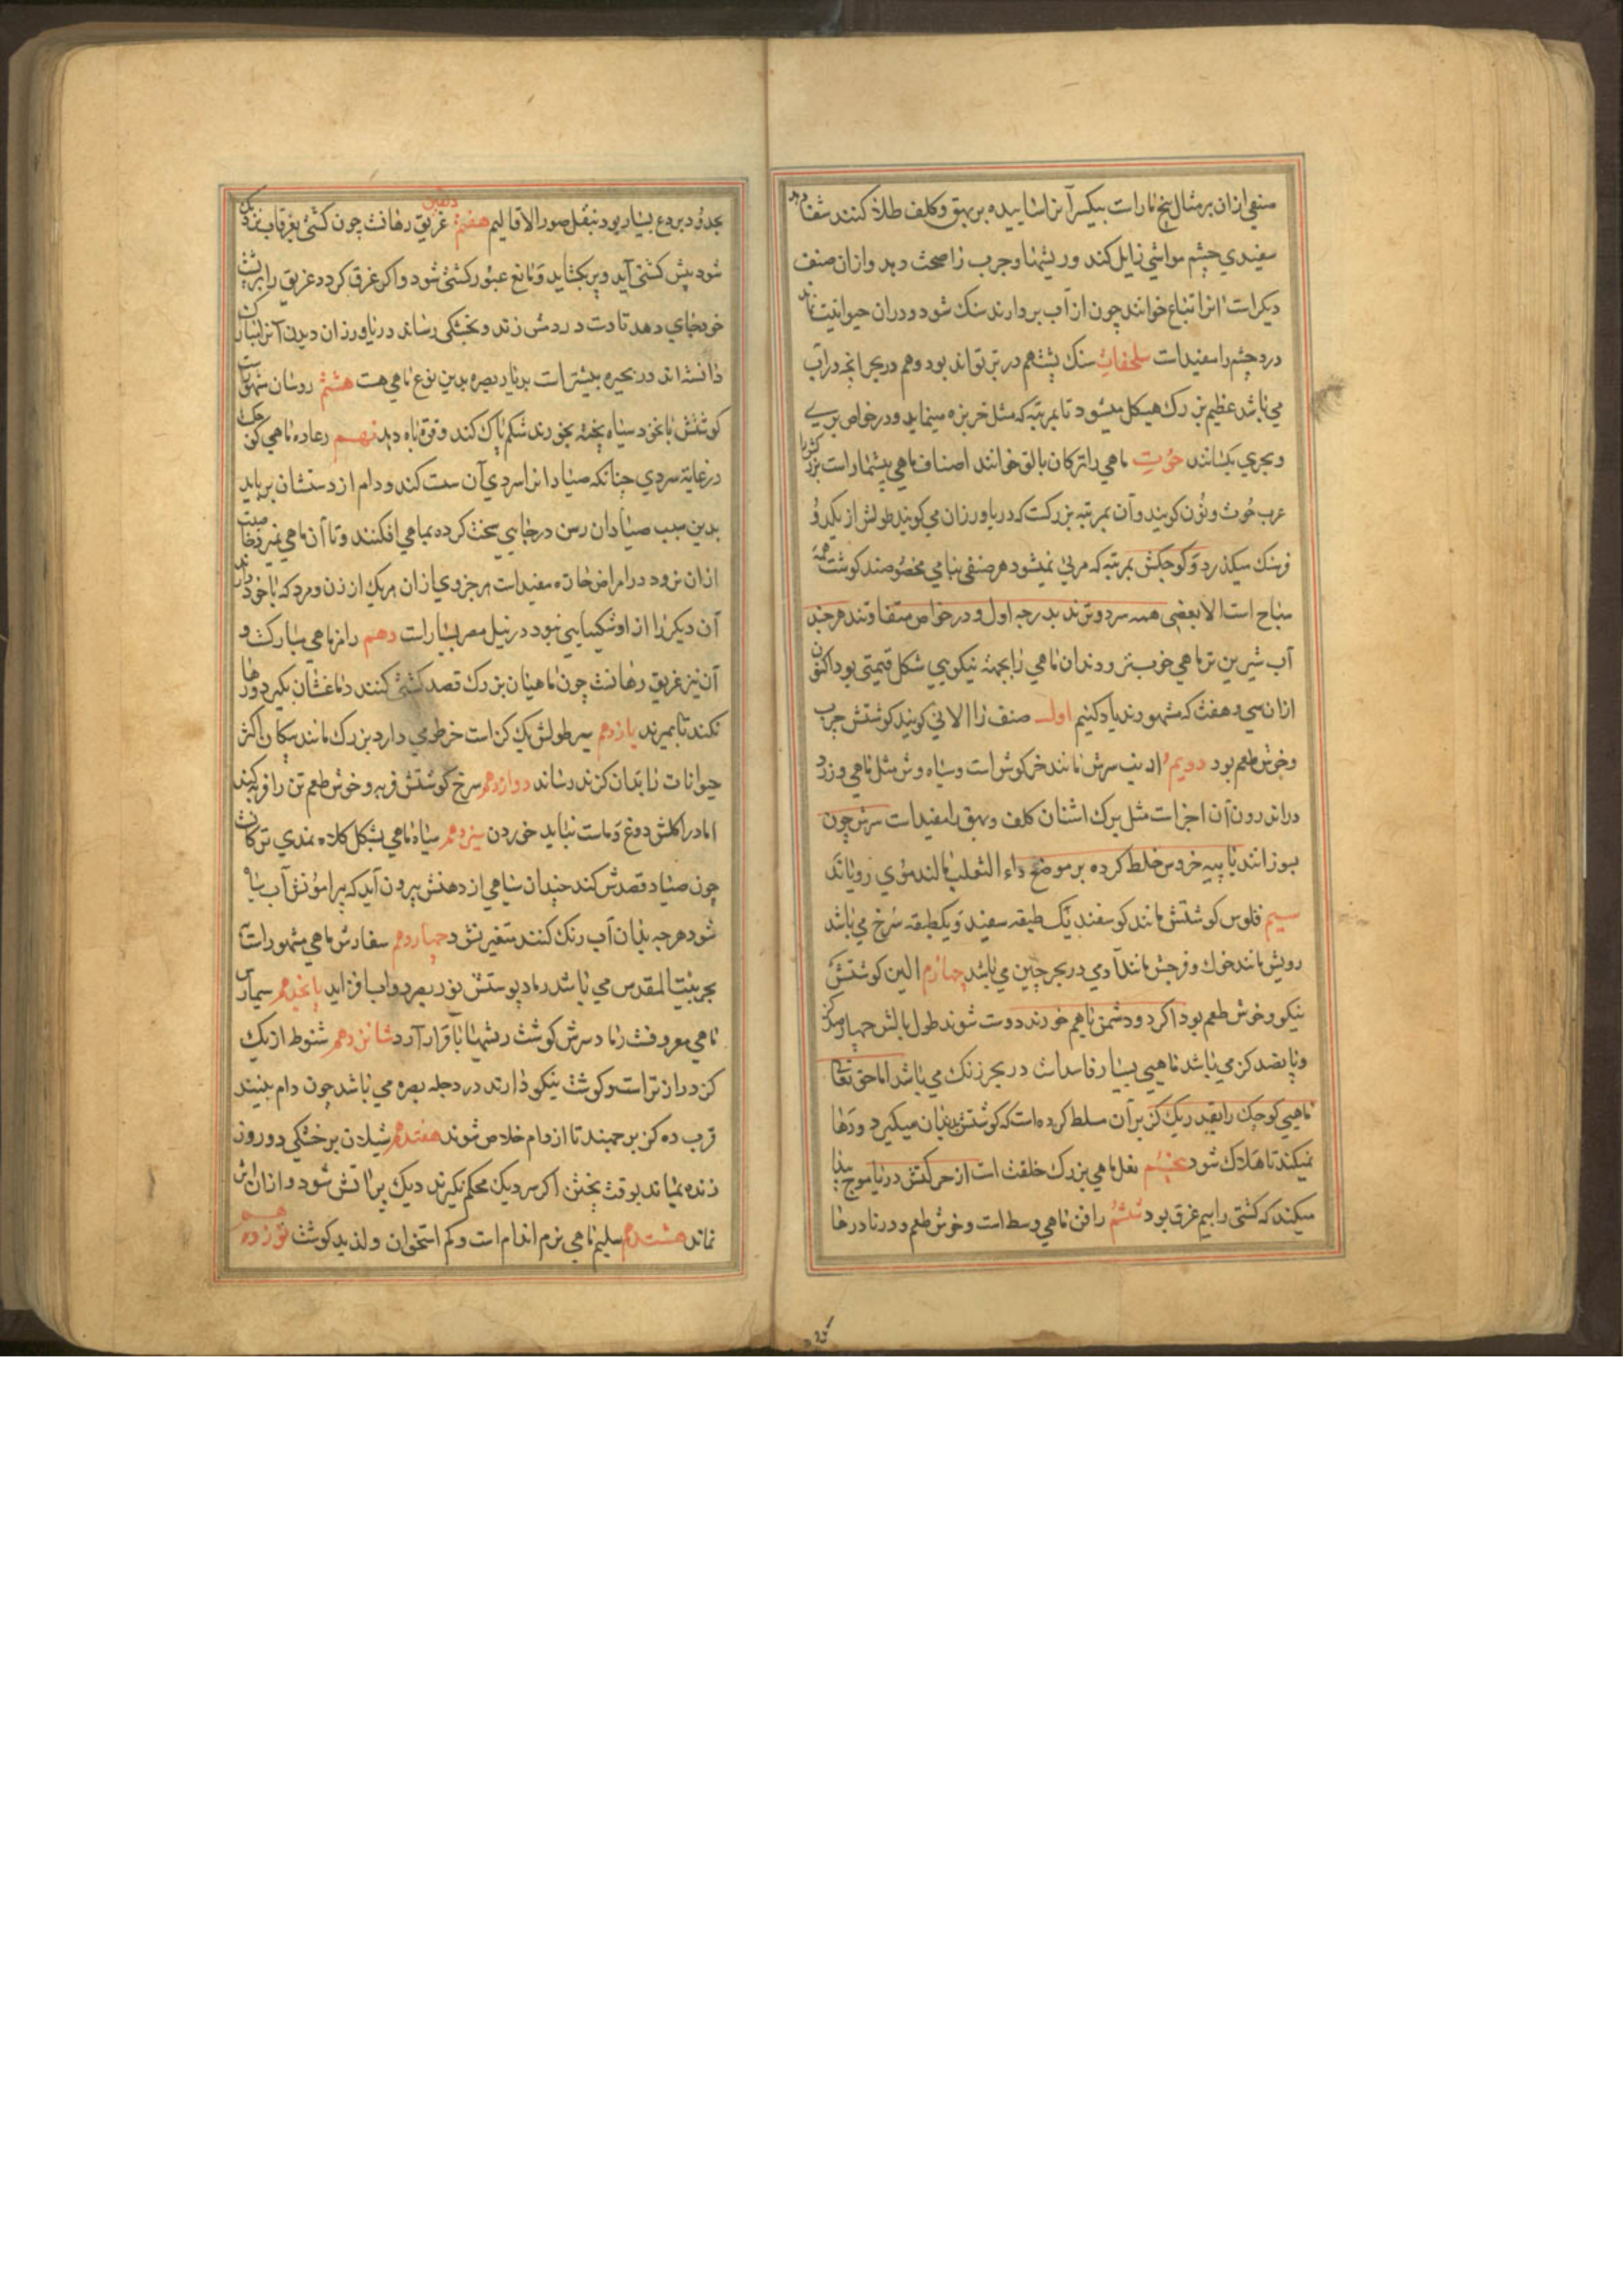 صنفی ازان بر مثال پنج مارات بیکسر آنرا سائیده بر بهق و کلف طلا کنند شفا دهد
سفیدی چشم مواشی زایل کند و ریشها و جرب را صحت دهد و ازان صنف
دیکر است انرا تباع خوانند چون از آب بردارند سنک شود و دران حیوانیت نماند
درد چشم را مفید است سلحفات سنک پشت هم در بر تواند بود و هم در بحر انچه در آب
می باشد عظیم بزرک هیکل میشود تا بمرتبه که مثل خر بزه مینماید و در خواص بری
و بحری یکسانند حوت ماهی را ترکان بالق خوانند اصناف ماهی بیشمار است بزرکش را
عرب حوت و نون کویند و آن بمرتبه بزرکست که دریاورزان می کویند طولش از یکدو
فرسنک میکذرد و کوچکش بمرتبه که مرئی نمیشود هر صنفی بنامی مخصوصند کوشت همه
مباح است الا بعضی همه سرد و ترند بدرجه اول و در خواص متفاوتند هر چند
آب شیرین تر ماهی خوبتر و دندان ماهی را بجهة نیکویی شکل قیمتی بود اکنون
ازان سی و هفت که مشهورند یاد کنیم اول صنف را الانی کویند کوشتش چرب
و خوش طعم بود دویم ارنب سرش مانند خرکوش است و سیاه وش مثل ماهی و زرد
در اندرون آن اجزاست مثل برک اشنان کلف و بهق را مفید است سرش چون
بسوزانند با پیه خروس خلط کرده بر موضع داء الثعلب مالند موی رویاند
سیم فلوس کوشتش مانند کوسفند یک طبقه سفید و یکطبقه سرخ می باشد
رویش مانند خوک و فرجش مانند آدمی در بحر چین می باشد چهارم الین کوشتش
نیکو و خوش طعم بود اکر دو دشمن باهم خورند دوست شوند طول بالش چهار صد کز
و پانصد کز می باشد ماهیی بسیار فاسد است در بحر زنک می باشد اما حق تعالی
ماهیی کوچک را بقدر یک کز بر آن مسلط کرده است که کوشتش بدندان میکیرد و رها
نمیکند تا هلاک شود پنجم بغل ماهی بزرک خلقت است از حرکتش در دریا موج پیدا
میکند که کشتی را بیم غرق بود ششم رافن ماهی وسط است و خوش طعم و در نادرها
بحدود بردع بسیار بود بنقل صور الاقالیم هفتم دلفین غریق رهانست چون کشتی بغرقاب نزدیک
شود پیش کشتی آید و پر بکشاید و مانع عبور کشتی شود و اکر غرق کردد غریق را بر پشت
خود جای دهد تا دست در دمش زند و بخشکی رساند دریاورزان دیدن آنرا مبارک
دانسته اند در بحیره بیشتر است بدریای بصره بدین نوع ماهی هست هشتم روسان شهوت است
کوشتش با نخود سیاه پخته بخورند شکم پاک کند و قوة باه دهد نهم رعاده ماهی کوچک
در غایة سردی چنانکه صیاد انرا سردی آن سست کند و دام از دستشان برباید
بدین سبب صیادان رسن در جایی سخت کرده بماهی افکنند و تا آن ماهی نمیرد خاصیت
ازان نرود در امراض حاره مفید است هر جزوی ازان هر یک از زن و مرد که با خود دارند
آن دیکر را از او شکیبایی نبود در نیل مصر بسیار است دهم رامز ماهی مبارکست و
آن نیز غریق رهانست چون ماهیان بزرک قصد کشتی کنند دماغشان بکیرد و رها
نکند تا بمیرند یازدهم سر طولش یک کز است خرطومی دارد بزرک مانند پیکان اکثر
حیوانات را بدان کزند رساند دوازدهم سرخ کوشتش فربه و خوش طعم تن را فربه کند
اما در اکلش دوغ و ماست نباید خوردن سیزدهم سیاه ماهی بشکل کلاه نمدی ترکان
چون صیاد قصدش کند چندان سیاهی از دهنش بیرون آید که پیرامونش آب سیاه
شود هر چه بدان آب رنک کنند متغیر نشود چهاردهم سفارس ماهی مشهور است
ببحر بیت المقدس می باشد رماد پوستش نور بصر دواب افزاید پانزدهم سیمارس
ماهی معروفست رماد سرش کوشت ریشها با قرار آرد شانزدهم شنوط از یک
کز دراز تر است و کوشت نیکو دارند در دجله بصره می باشد چون دام بینند
قرب ده کز بر جهند تا از دام خلاص شوند هفتدهم شیلان بر خشکی دو روز
زنده بماند بوقت پختن اکر سر دیک محکم نکیرند دیک پر آتش شود و ازان اش
نماند هشتدهم سلیم ماهی نرم اندام است و کم استخوان و لذید کوشت نوزدهم